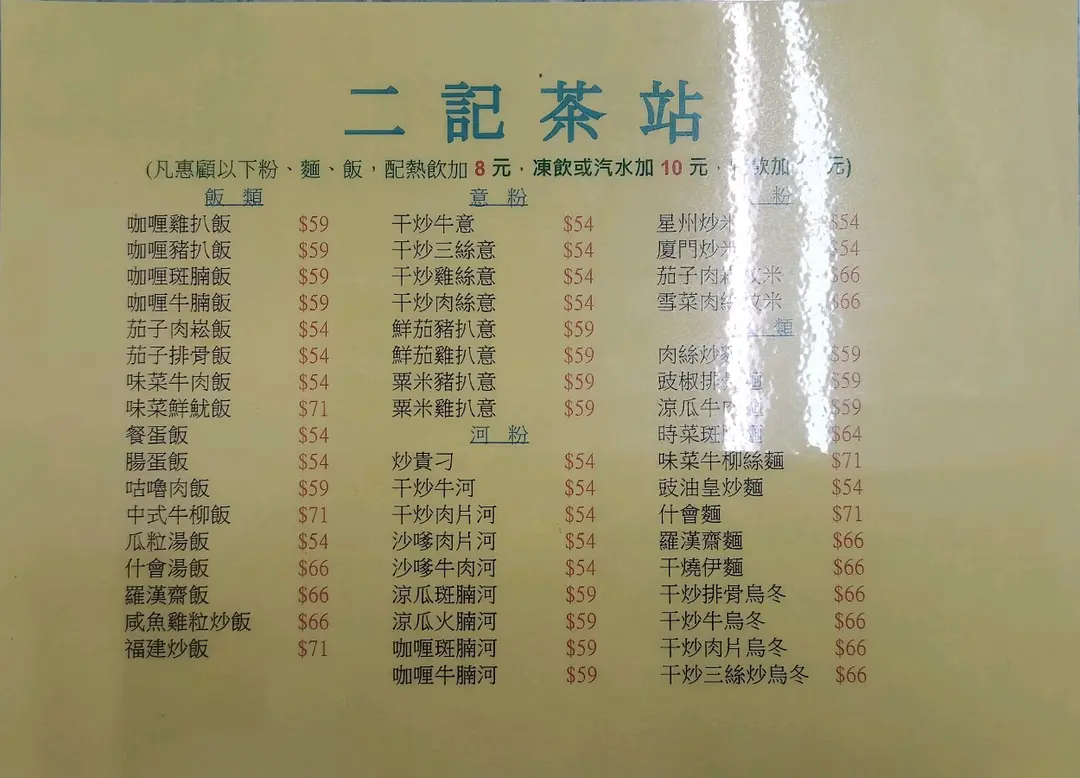 二記茶站
(凡惠顧以下粉、麵、飯，配熱飲加 8 元，凍飲或汽水加 10 元，飲加 元)
飯 類
咖喱雞扒飯 $59
咖喱豬扒飯 $59
咖喱斑腩飯 $59
咖喱牛腩飯 $59
茄子肉崧飯 $54
茄子排骨飯 $54
味菜牛肉飯 $54
味菜鮮魷飯 $71
餐蛋飯 $54
腸蛋飯 $54
咕嚕肉飯 $59
中式牛柳飯 $71
瓜粒湯飯 $54
什會湯飯 $66
羅漢齋飯 $66
咸魚雞粒炒飯 $66
福建炒飯 $71
意 粉
干炒牛意 $54
干炒三絲意 $54
干炒雞絲意 $54
干炒肉絲意 $54
鮮茄豬扒意 $59
鮮茄雞扒意 $59
粟米豬扒意 $59
粟米雞扒意 $59
河 粉
炒貴刁 $54
干炒牛河 $54
干炒肉片河 $54
沙嗲肉片河 $54
沙嗲牛肉河 $54
涼瓜斑腩河 $59
涼瓜火腩河 $59
咖喱斑腩河 $59
咖喱牛腩河 $59
粉
星州炒米 $54
廈門炒米 $54
茄子肉崧炆米 $66
雪菜肉絲炆米 $66
類
肉絲炒麵 $59
豉椒排骨麵 $59
涼瓜牛肉麵 $59
時菜斑腩麵 $64
味菜牛柳絲麵 $71
豉油皇炒麵 $54
什會麵 $71
羅漢齋麵 $66
干燒伊麵 $66
干炒排骨烏冬 $66
干炒牛烏冬 $66
干炒肉片烏冬 $66
干炒三絲炒烏冬 $66